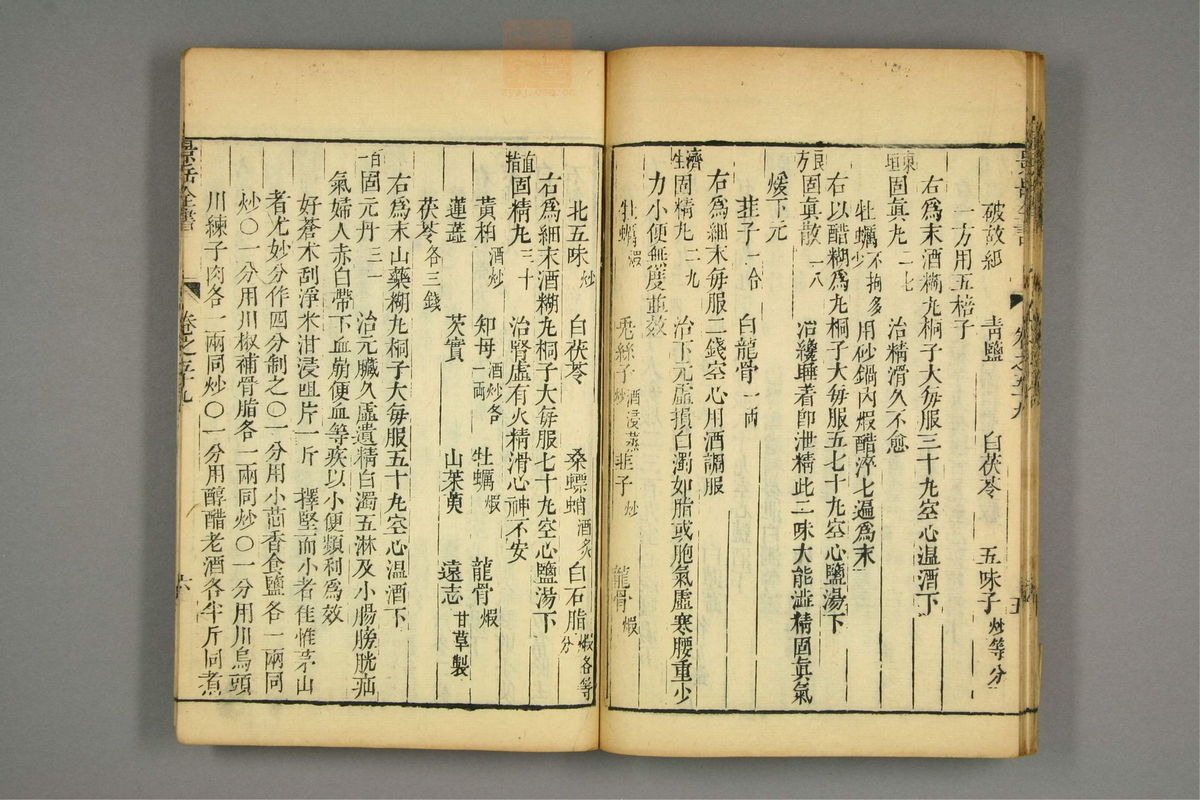 破故紙 青鹽 白茯苓 五味子炒等分
一方用五棓子
右爲末酒糊丸桐子大每服三十丸空心温酒下
東垣固眞丸二七 治精滑久不愈
牡蠣不拘多少 用砂鍋內煆醋淬七遍爲末
右以醋糊爲丸桐子大每服五七十丸空心鹽湯下
良方固眞散一八 治纔睡着卽泄精此二味大能澁精固眞氣
煖下元
韭子一合 白龍骨一両
右爲細末每服二錢空心用酒調服
濟生固精丸二九 治下元虛損白濁如脂或胞氣虛寒腰重少
力小便無度並效
牡蠣煆 兎絲子酒浸蒸炒 韭子炒 龍骨煆
北五味炒 白茯苓 桑螵蛸酒炙 白石脂煆各等分
右爲細末酒糊丸桐子大每服七十丸空心鹽湯下
直指固精丸三十 治腎虛有火精滑心神不安
黃栢酒炒 知母酒炒各一両 牡蠣煆 龍骨煆
蓮蕋 芡實 山茱萸 遠志甘草製
茯苓各三錢
右爲末山藥糊丸桐子大每服五十丸空心温酒下
百一固元丹三一 治元臟久虛遺精白濁五淋及小腸膀胱疝
氣婦人赤白帶下血崩便血等疾以小便頻利爲效
好蒼朮刮淨米泔浸咀片一斤 擇堅而小者佳惟茅山
者尤妙分作四分制之〇一分用小茴香食鹽各一兩同
炒〇一分用川椒補骨脂各一兩同炒〇一分用川烏頭
川練子肉各一兩同炒〇一分用醇醋老酒各半斤同煮
景岳全書 卷之五十九 六